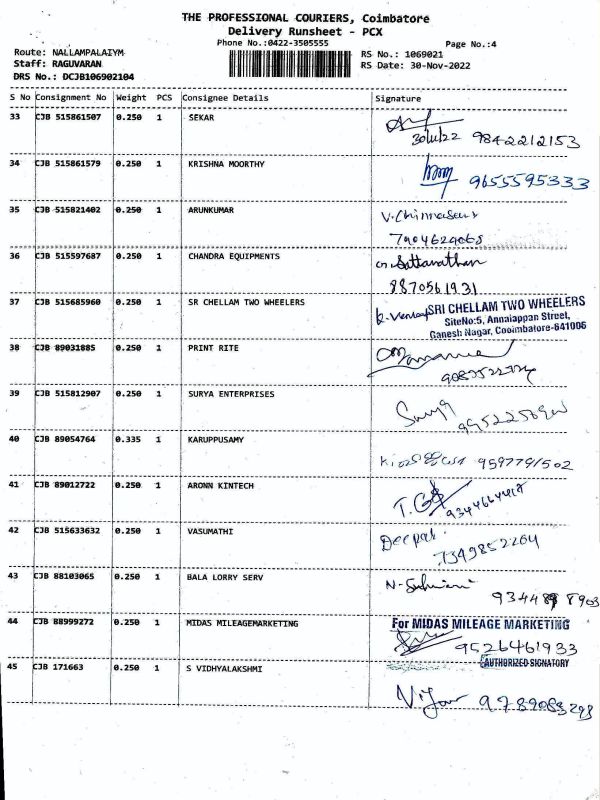 THE PROFESSIONAL COURIERS, Coimbatore
Delivery Runsheet - PCX
Phone No.:0422-3505555
Page No.:4
Route: NALLAMPALAIYM
RS No.: 1069021
Staff: RAGUVARAN
RS Date: 30-Nov-2022
DRS No.: DCJB106902104
S No Consignment No Weight PCS Consignee Details Signature
33 CJB 515861507 0.250 1 SEKAR
30/11/22 9842212153
34 CJB 515861579 0.250 1 KRISHNA MOORTHY
9655595333
35 CJB 515821402 0.250 1 ARUNKUMAR
36 CJB 515597687 0.250 1 CHANDRA EQUIPMENTS
8870561931
37 CJB 515685960 0.250 1 SR CHELLAM TWO WHEELERS
SRI CHELLAM TWO WHEELERS
SiteNo:5, Annaiappan Street,
Ganesh Nagar, Cooimbatore-641006
38 CJB 89031885 0.250 1 PRINT RITE
39 CJB 515812907 0.250 1 SURYA ENTERPRISES
Surya
40 CJB 89054764 0.335 1 KARUPPUSAMY
9597791502
41 CJB 89012722 0.250 1 ARONN KINTECH
42 CJB 515633632 0.250 1 VASUMATHI
Deepak
7349852264
43 CJB 88103065 0.250 1 BALA LORRY SERV
44 CJB 88999272 0.250 1 MIDAS MILEAGEMARKETING For MIDAS MILEAGE MARKETING
9526461933
AUTHORIZED SIGNATORY
45 CJB 171663 0.250 1 S VIDHYALAKSHMI
9789083298